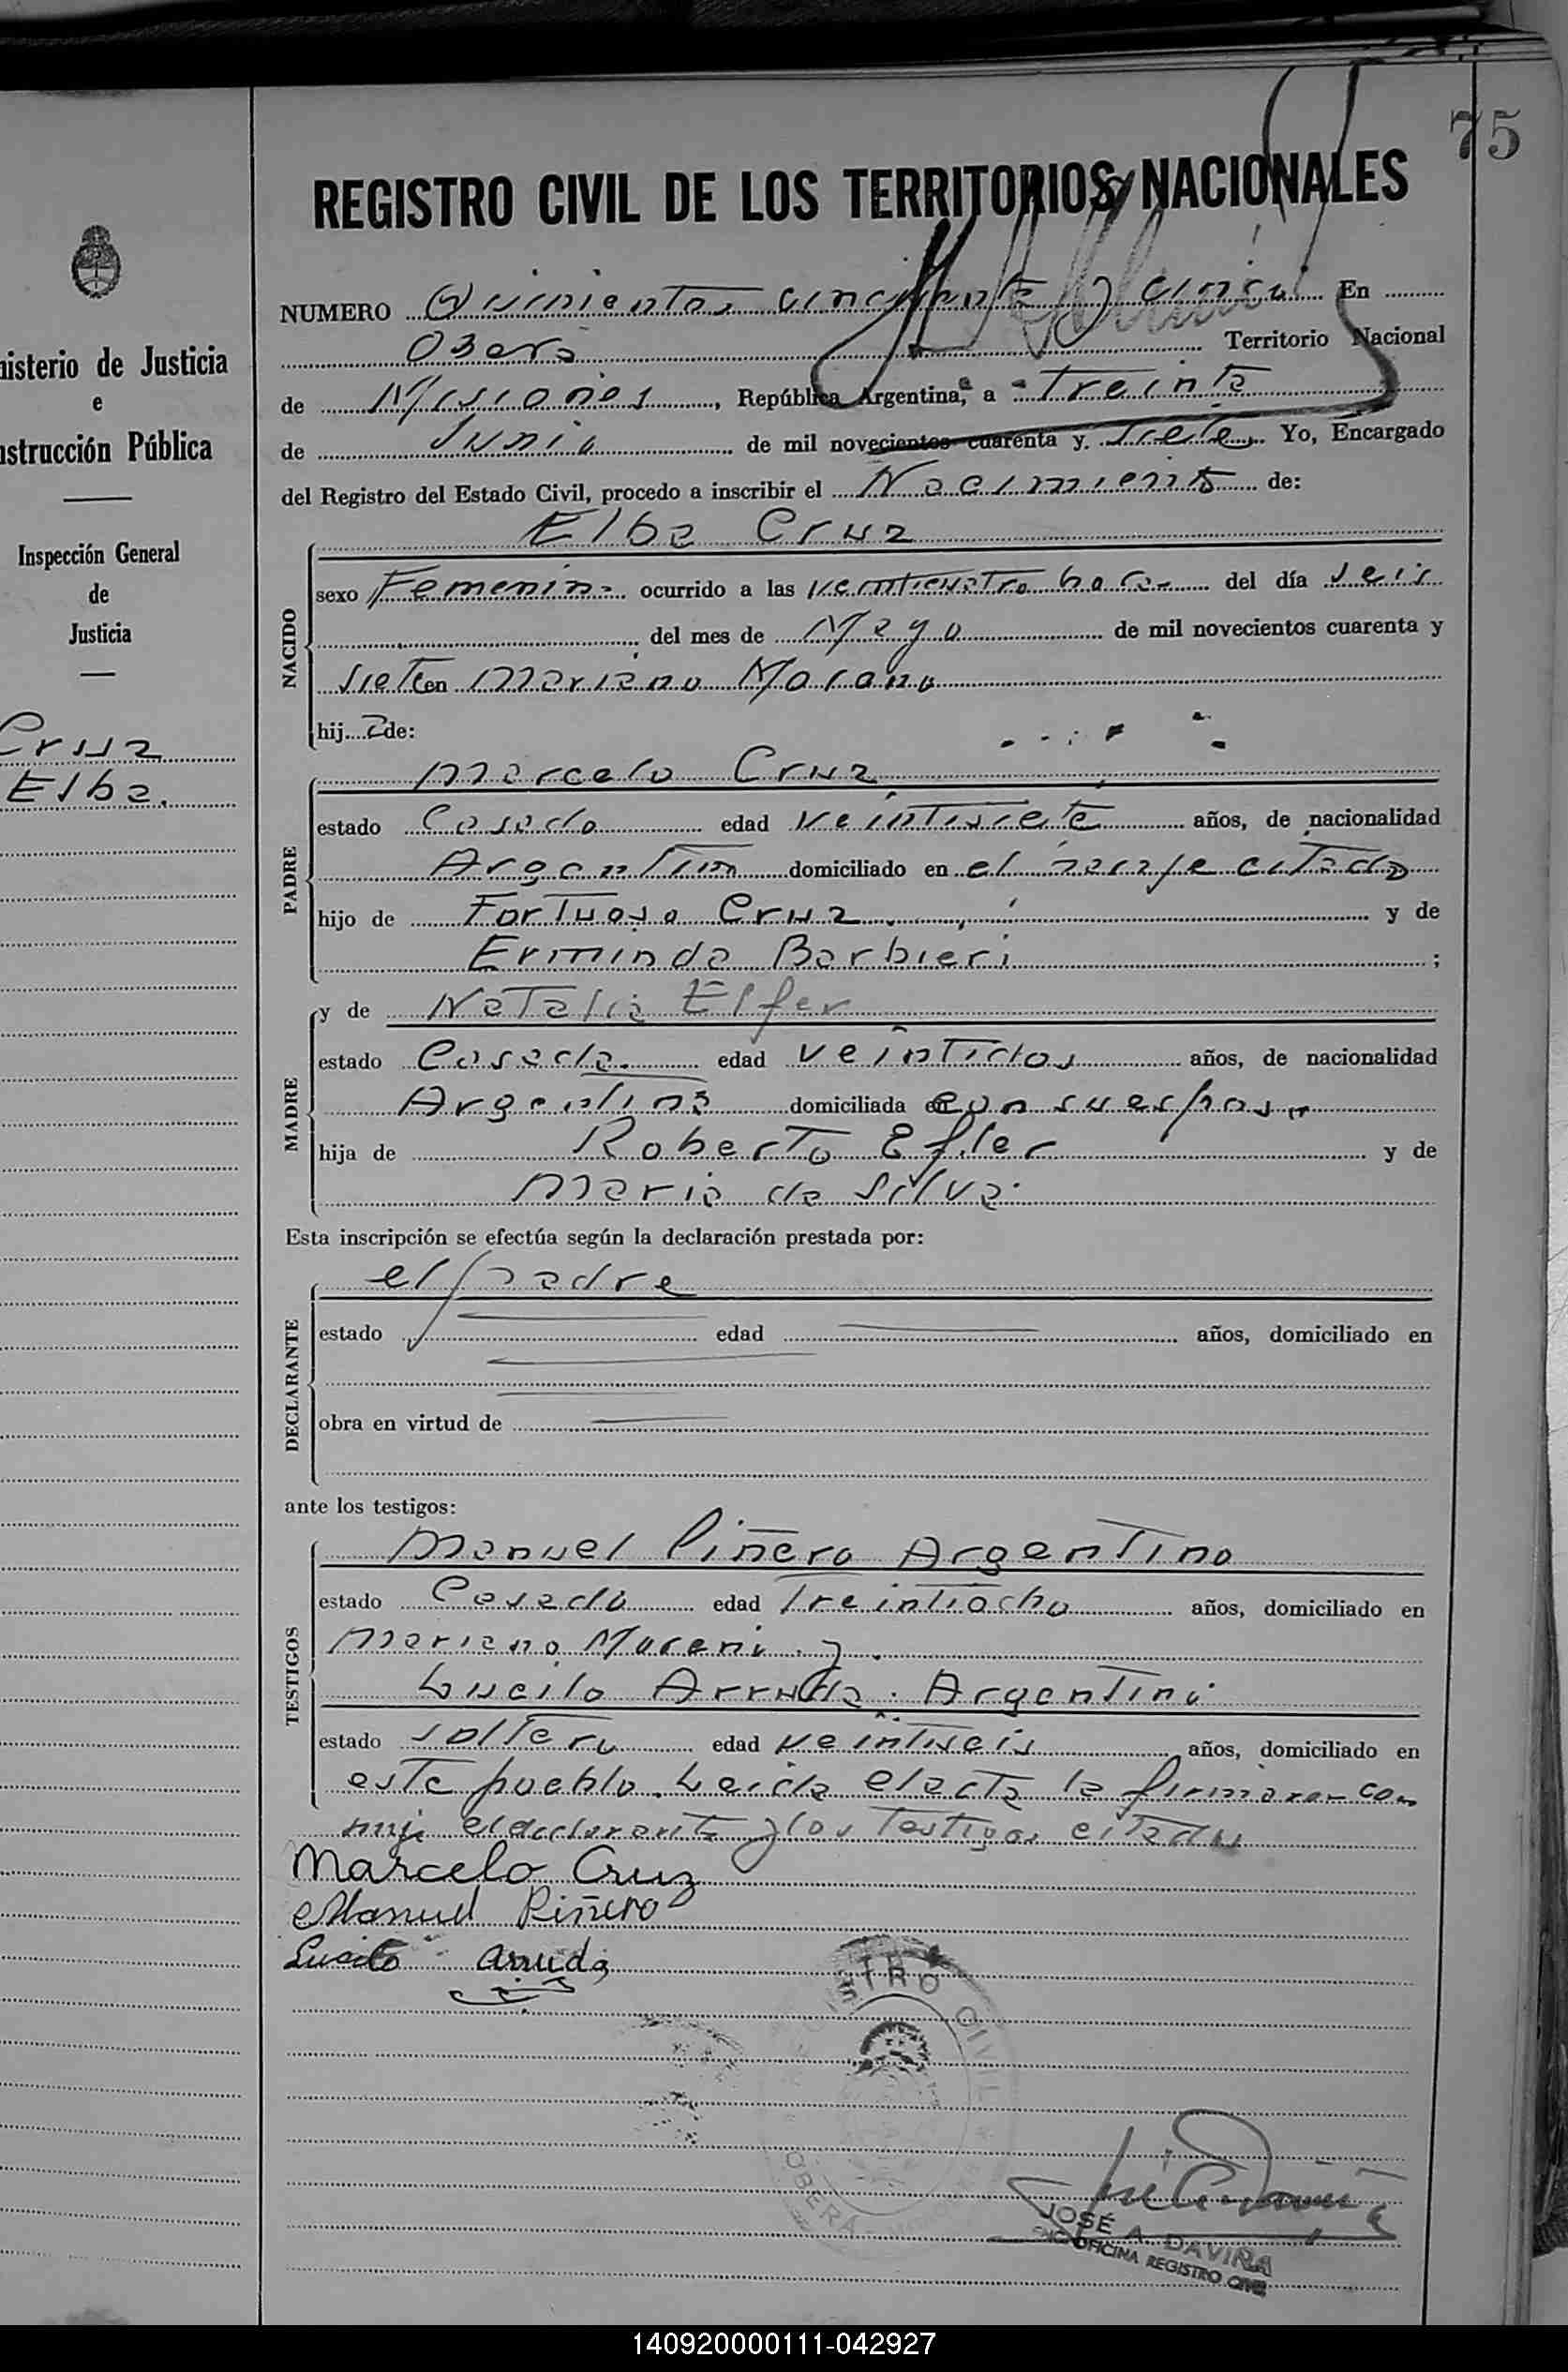 75
REGISTRO CIVIL DE LOS TERRITORIOS NACIONALES
nisterio de Justicia
e
nstrucción Pública
Inspección General
de
Justicia
Cruz
Elba.
NUMERO Quinientos cincuenta y cinco En
Oberá Territorio Nacional
de Misiones, República Argentina, a Treinta
de Junio de mil novecientos cuarenta y siete Yo, Encargado
del Registro del Estado Civil, procedo a inscribir el Nacimiento de:
NACIDO
Elba Cruz
sexo Femenino ocurrido a las veinticuatro horas del día seis
del mes de Mayo de mil novecientos cuarenta y
siete en Mariano Moreno
hija de:
PADRE
Marcelo Cruz
estado Casado edad veintisiete años, de nacionalidad
Argentino domiciliado en el paraje citado
hijo de Fortuoso Cruz y de
Erminda Barbieri ;
MADRE
y de Natalia Elfer
estado Casada edad veintidos años, de nacionalidad
Argentina domiciliada en con su esposo
hija de Roberto Efler y de
Maria da Silva.
Esta inscripción se efectúa según la declaración prestada por:
DECLARANTE
el padre
estado edad años, domiciliado en
obra en virtud de
ante los testigos:
TESTIGOS
Manuel Piñero Argentino
estado Casado edad treintiocho años, domiciliado en
Mariano Moreno y
Lucilo Arruda. Argentino
estado soltero edad veintiseis años, domiciliado en
este pueblo. Leida el acta la firmaron con
migo el declarante y los testigos citados
Marcelo Cruz
Manuel Piñero
Lucilo Arruda
REGISTRO CIVIL
OBERÁ
JOSÉ A. DAVIÑA
ENC. OFICINA REGISTRO CIVIL
140920000111-042927